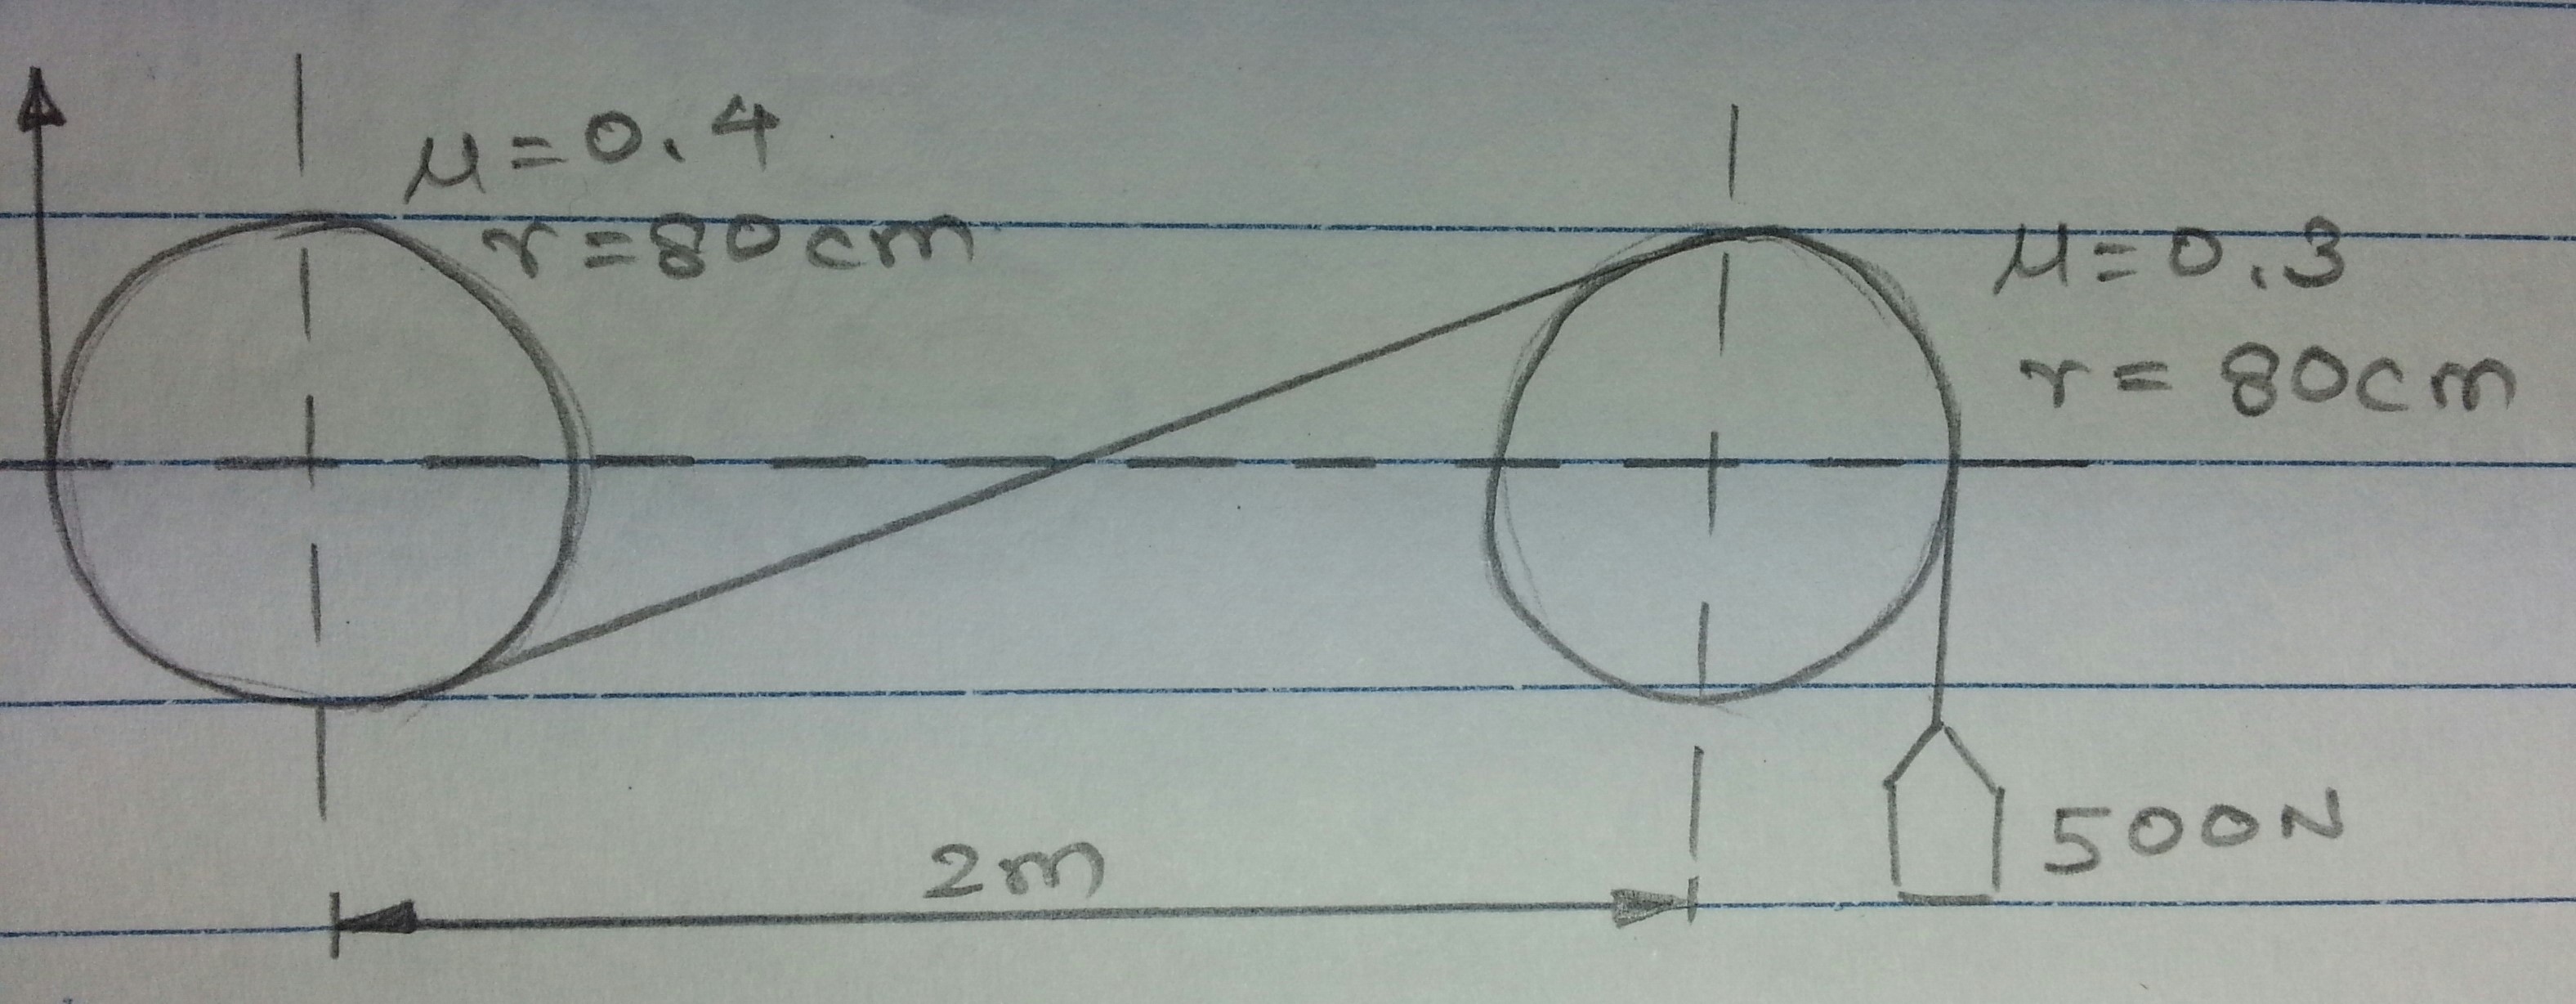 μ=0.4
r=80cm
μ=0.3
r=80cm
2m
500N